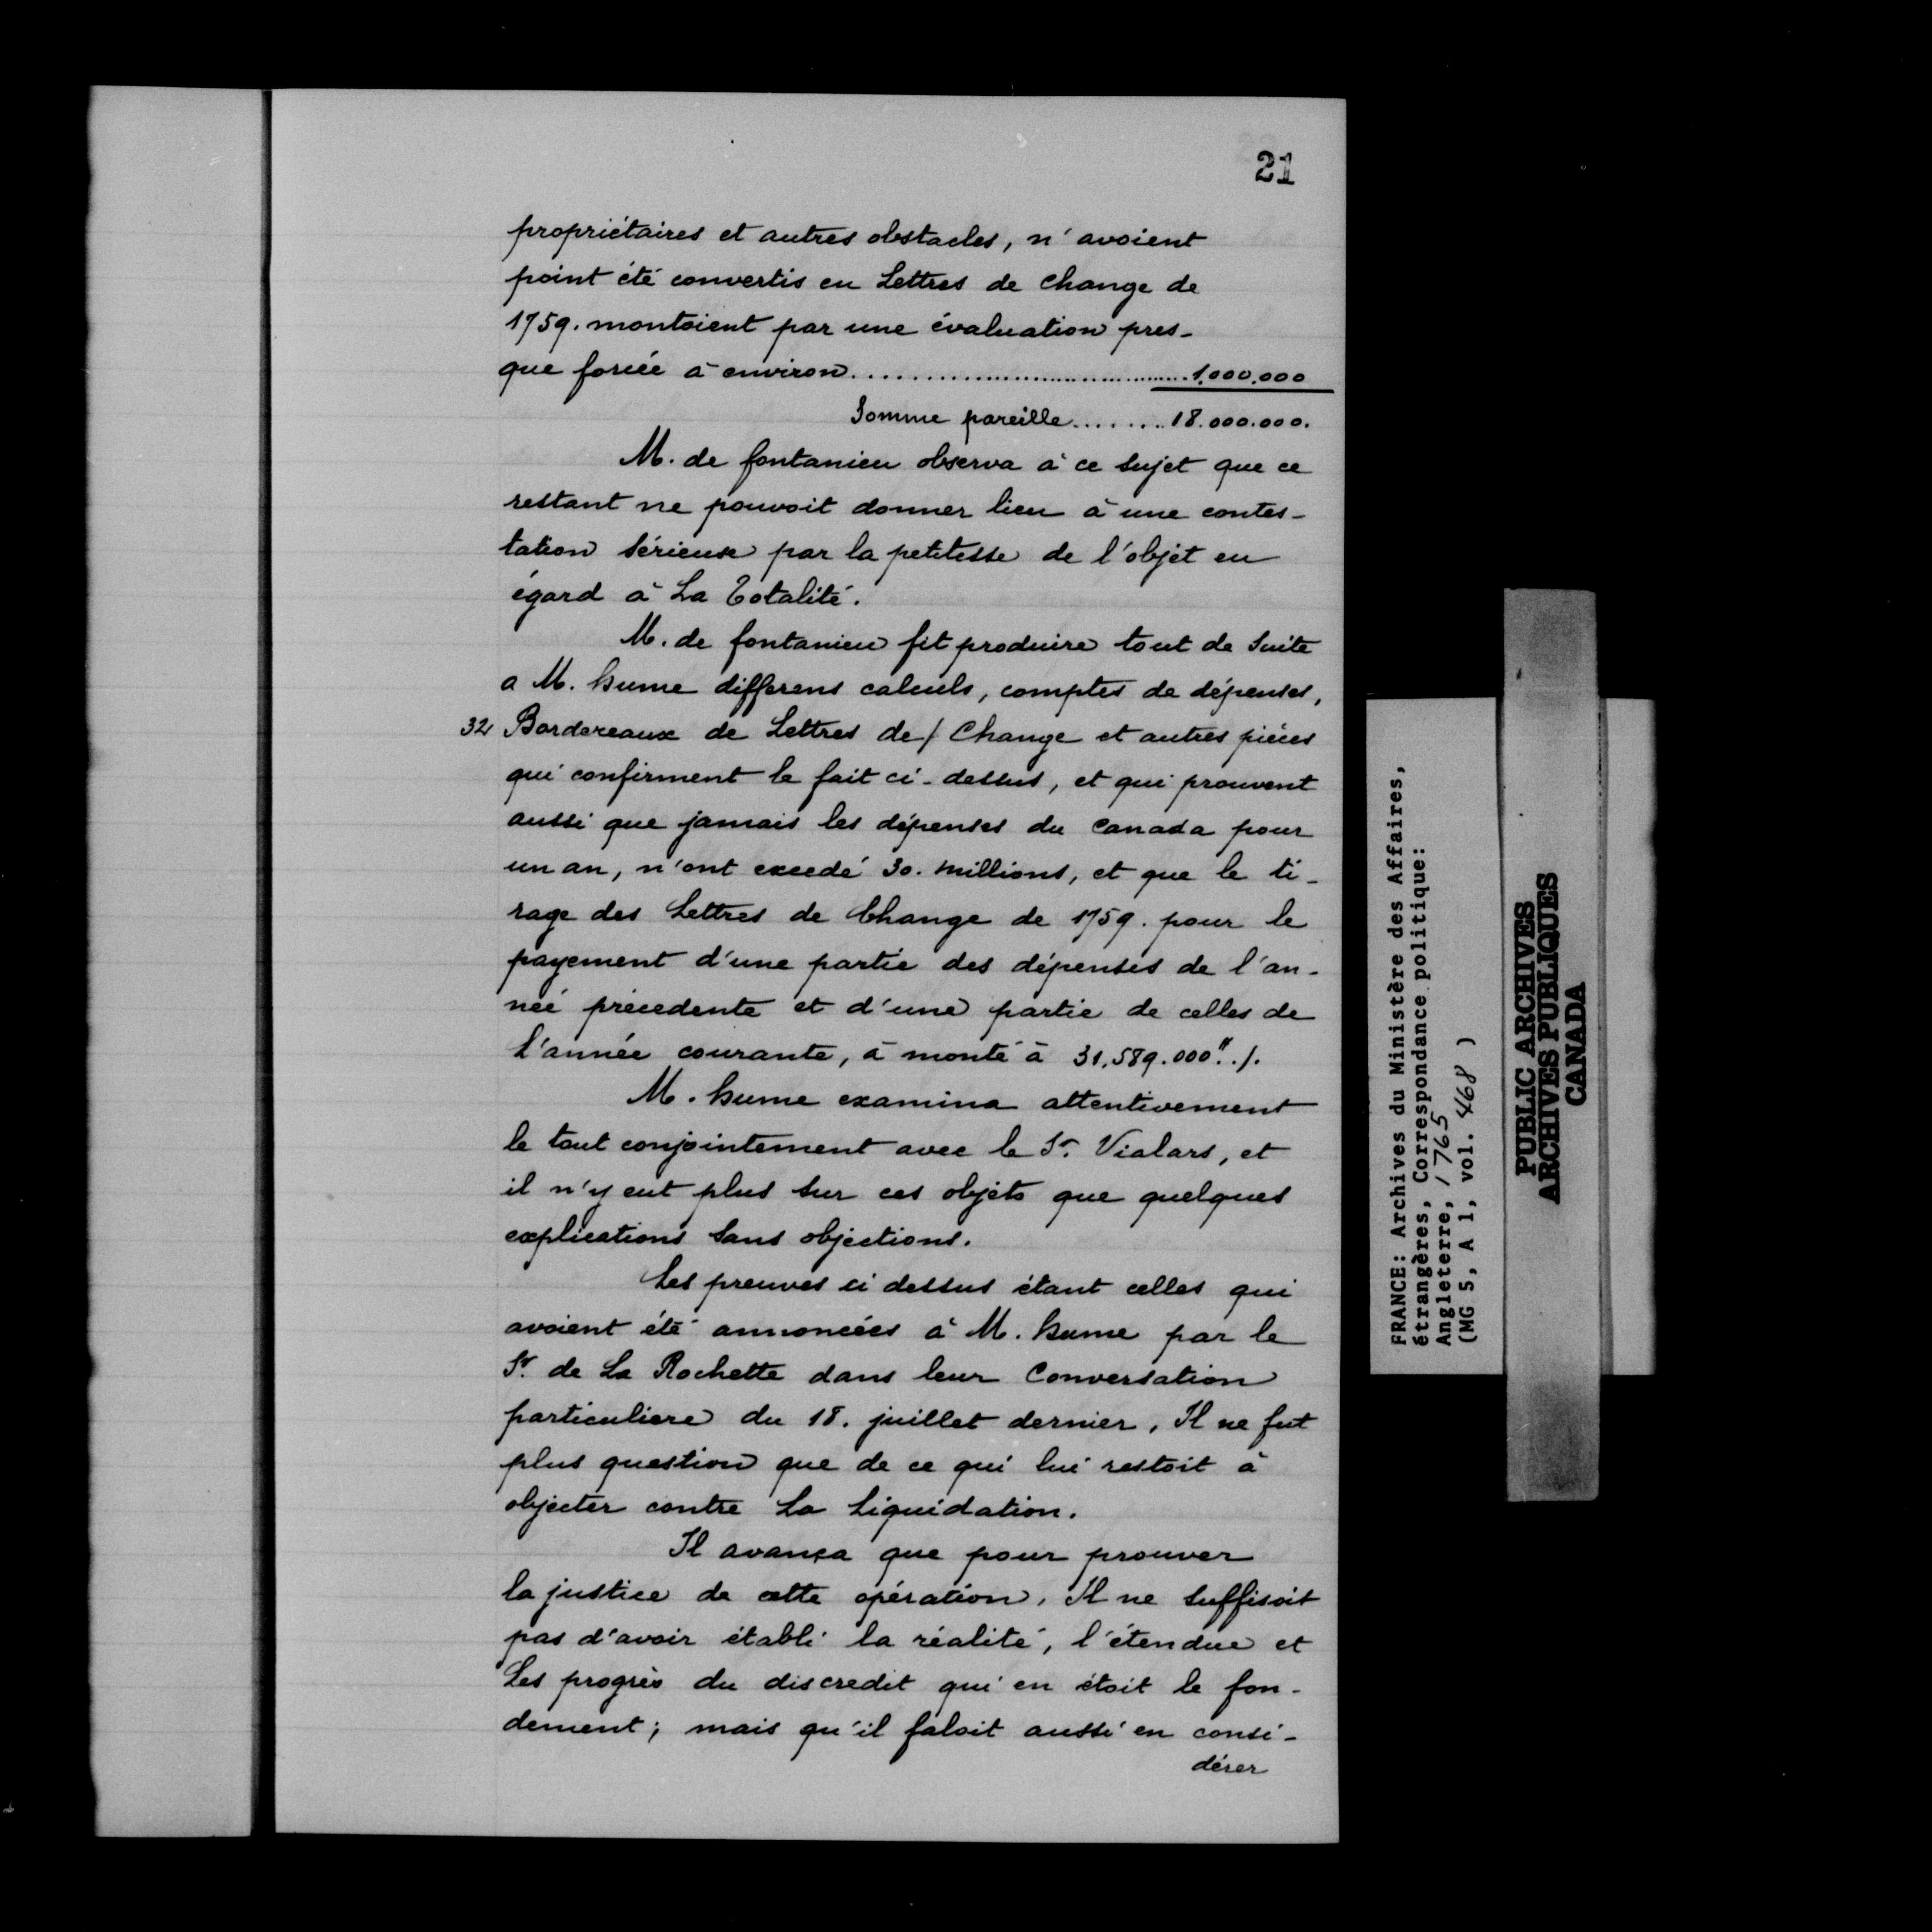 21
propriétaires et autres obstacles, n'avoient
point été convertis en Lettres de change de
1759. montoient par une évaluation pres-
que forcée à environ....................1,000,000
Somme pareille.......18.000.000.
M. de fontanieu observa à ce Sujet que ce
restant ne pouvoit donner lieu à une contes-
tation Sérieuse par la petitesse de l'objet eu
égard à La Totalité.
M. de fontanieu fit produire tout de Suite
a M. hume differens calculs, comptes de dépenses,
32 Bordereaux de Lettres de/ Change et autres piéces
qui confirment le fait ci-dessus, et qui prouvent
aussi que jamais les dépenses du Canada pour
un an, n'ont excedé 30. Millions, et que le ti-
rage des Lettres de Change de 1759. pour le
payement d'une partie des dépenses de l'an-
née précedente et d'une partie de celles de
L'année courante, à monté à 31.589.000"./.
M. hume examina attentivement
le tout conjointement avec le Sr. Vialars, et
il n'y eut plus Sur ces objets que quelques
explications Sans objections.
Les preuves ci dessus étant celles qui
avoient été annoncées à M. hume par le
Sr. de La Rochette dans leur Conversation
particuliere du 18. juillet dernier, Il ne fut
plus question que de ce qui lui restoit à
objecter contre La Liquidation.
Il avança que pour prouver
la justice de cette opération, Il ne Suffisoit
pas d'avoir établi la réalité, l'étendue et
Les progrès du discredit qui en étoit le fon-
dement; mais qu'il faloit aussi en consi-
dérer
FRANCE: Archives du Ministère des Affaires,
étrangères, Correspondance politique:
Angleterre, 1765
(MG 5, A 1, vol. 468 )
PUBLIC ARCHIVES
ARCHIVES PUBLIQUES
CANADA